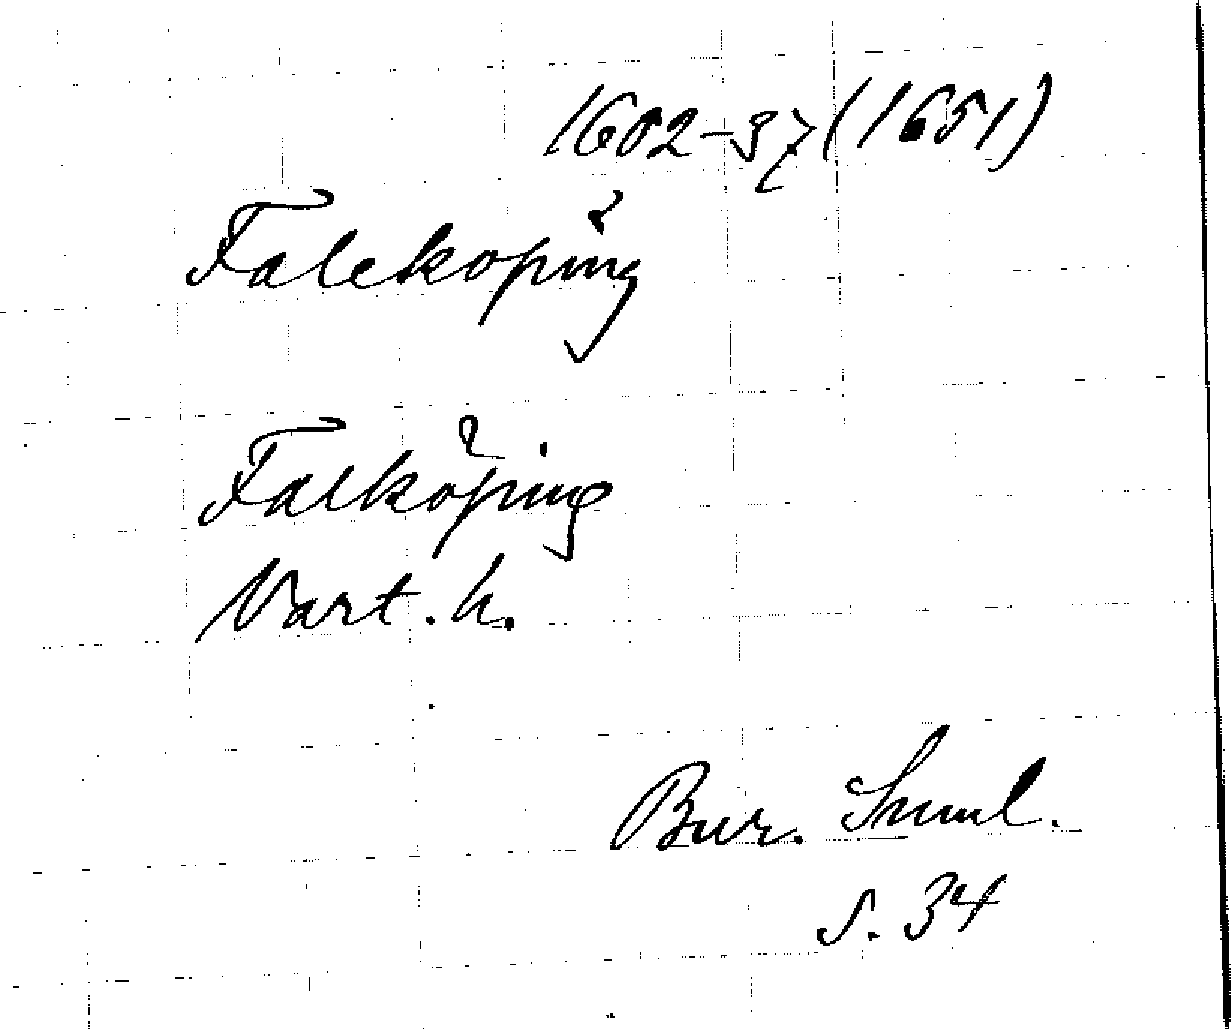 1602-37 (1651)
Falekoping
Falköping
Vart. h.
Bur. Suml.
s. 34